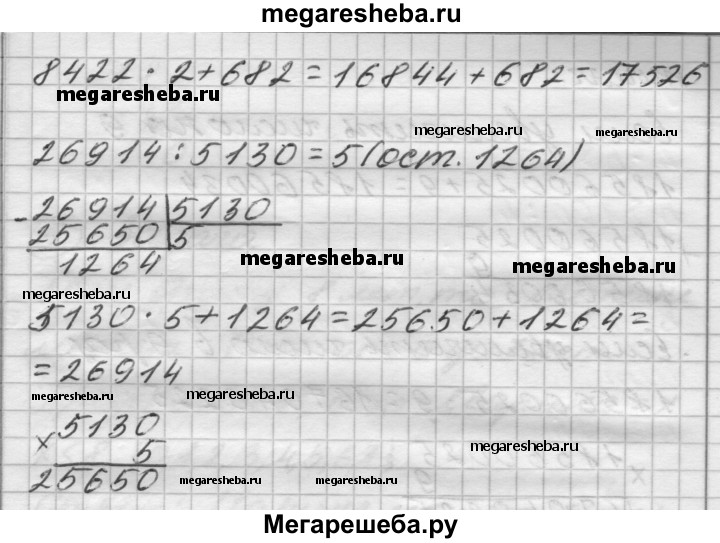 megaresheba.ru
8422 · 2 + 682 = 16844 + 682 = 17526
megaresheba.ru
megaresheba.ru
megaresheba.ru
26914 : 5130 = 5 (ост. 1264)
- 26914 | 5130
25650 | 5
1264
megaresheba.ru
megaresheba.ru
megaresheba.ru
5130 · 5 + 1264 = 25650 + 1264 =
= 26914
megaresheba.ru
megaresheba.ru
× 5130
5
25650
megaresheba.ru
megaresheba.ru
megaresheba.ru
megaresheba.ru
Мегарешеба.ру